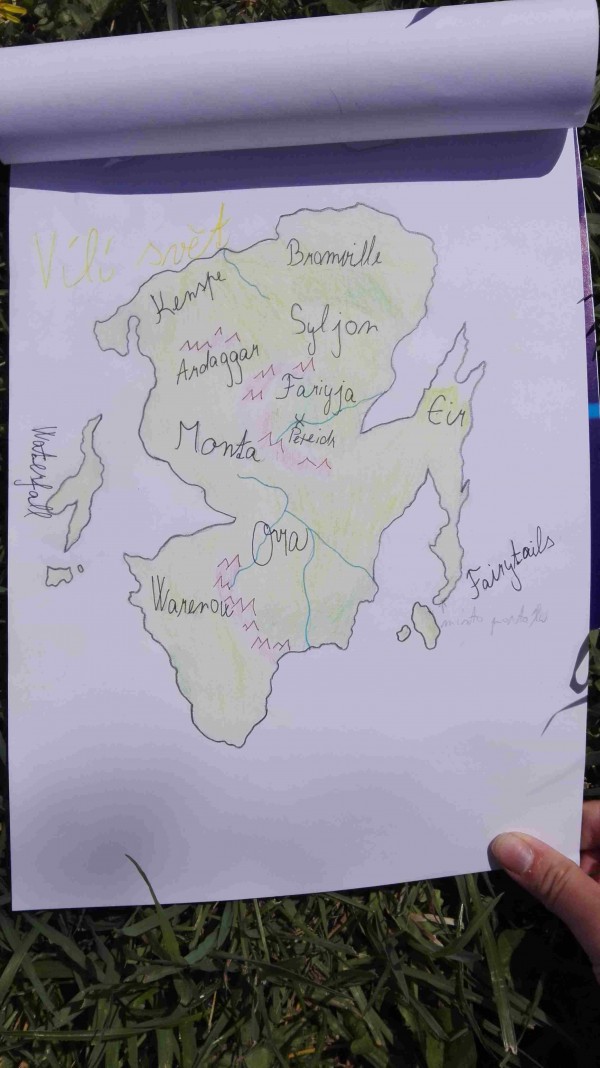 Vílí svět
Bramville
Kenspe
Syljon
Ardaggar
Fariyja
Eir
Monta
Waterfall
Ova
Fairytails
Warenou